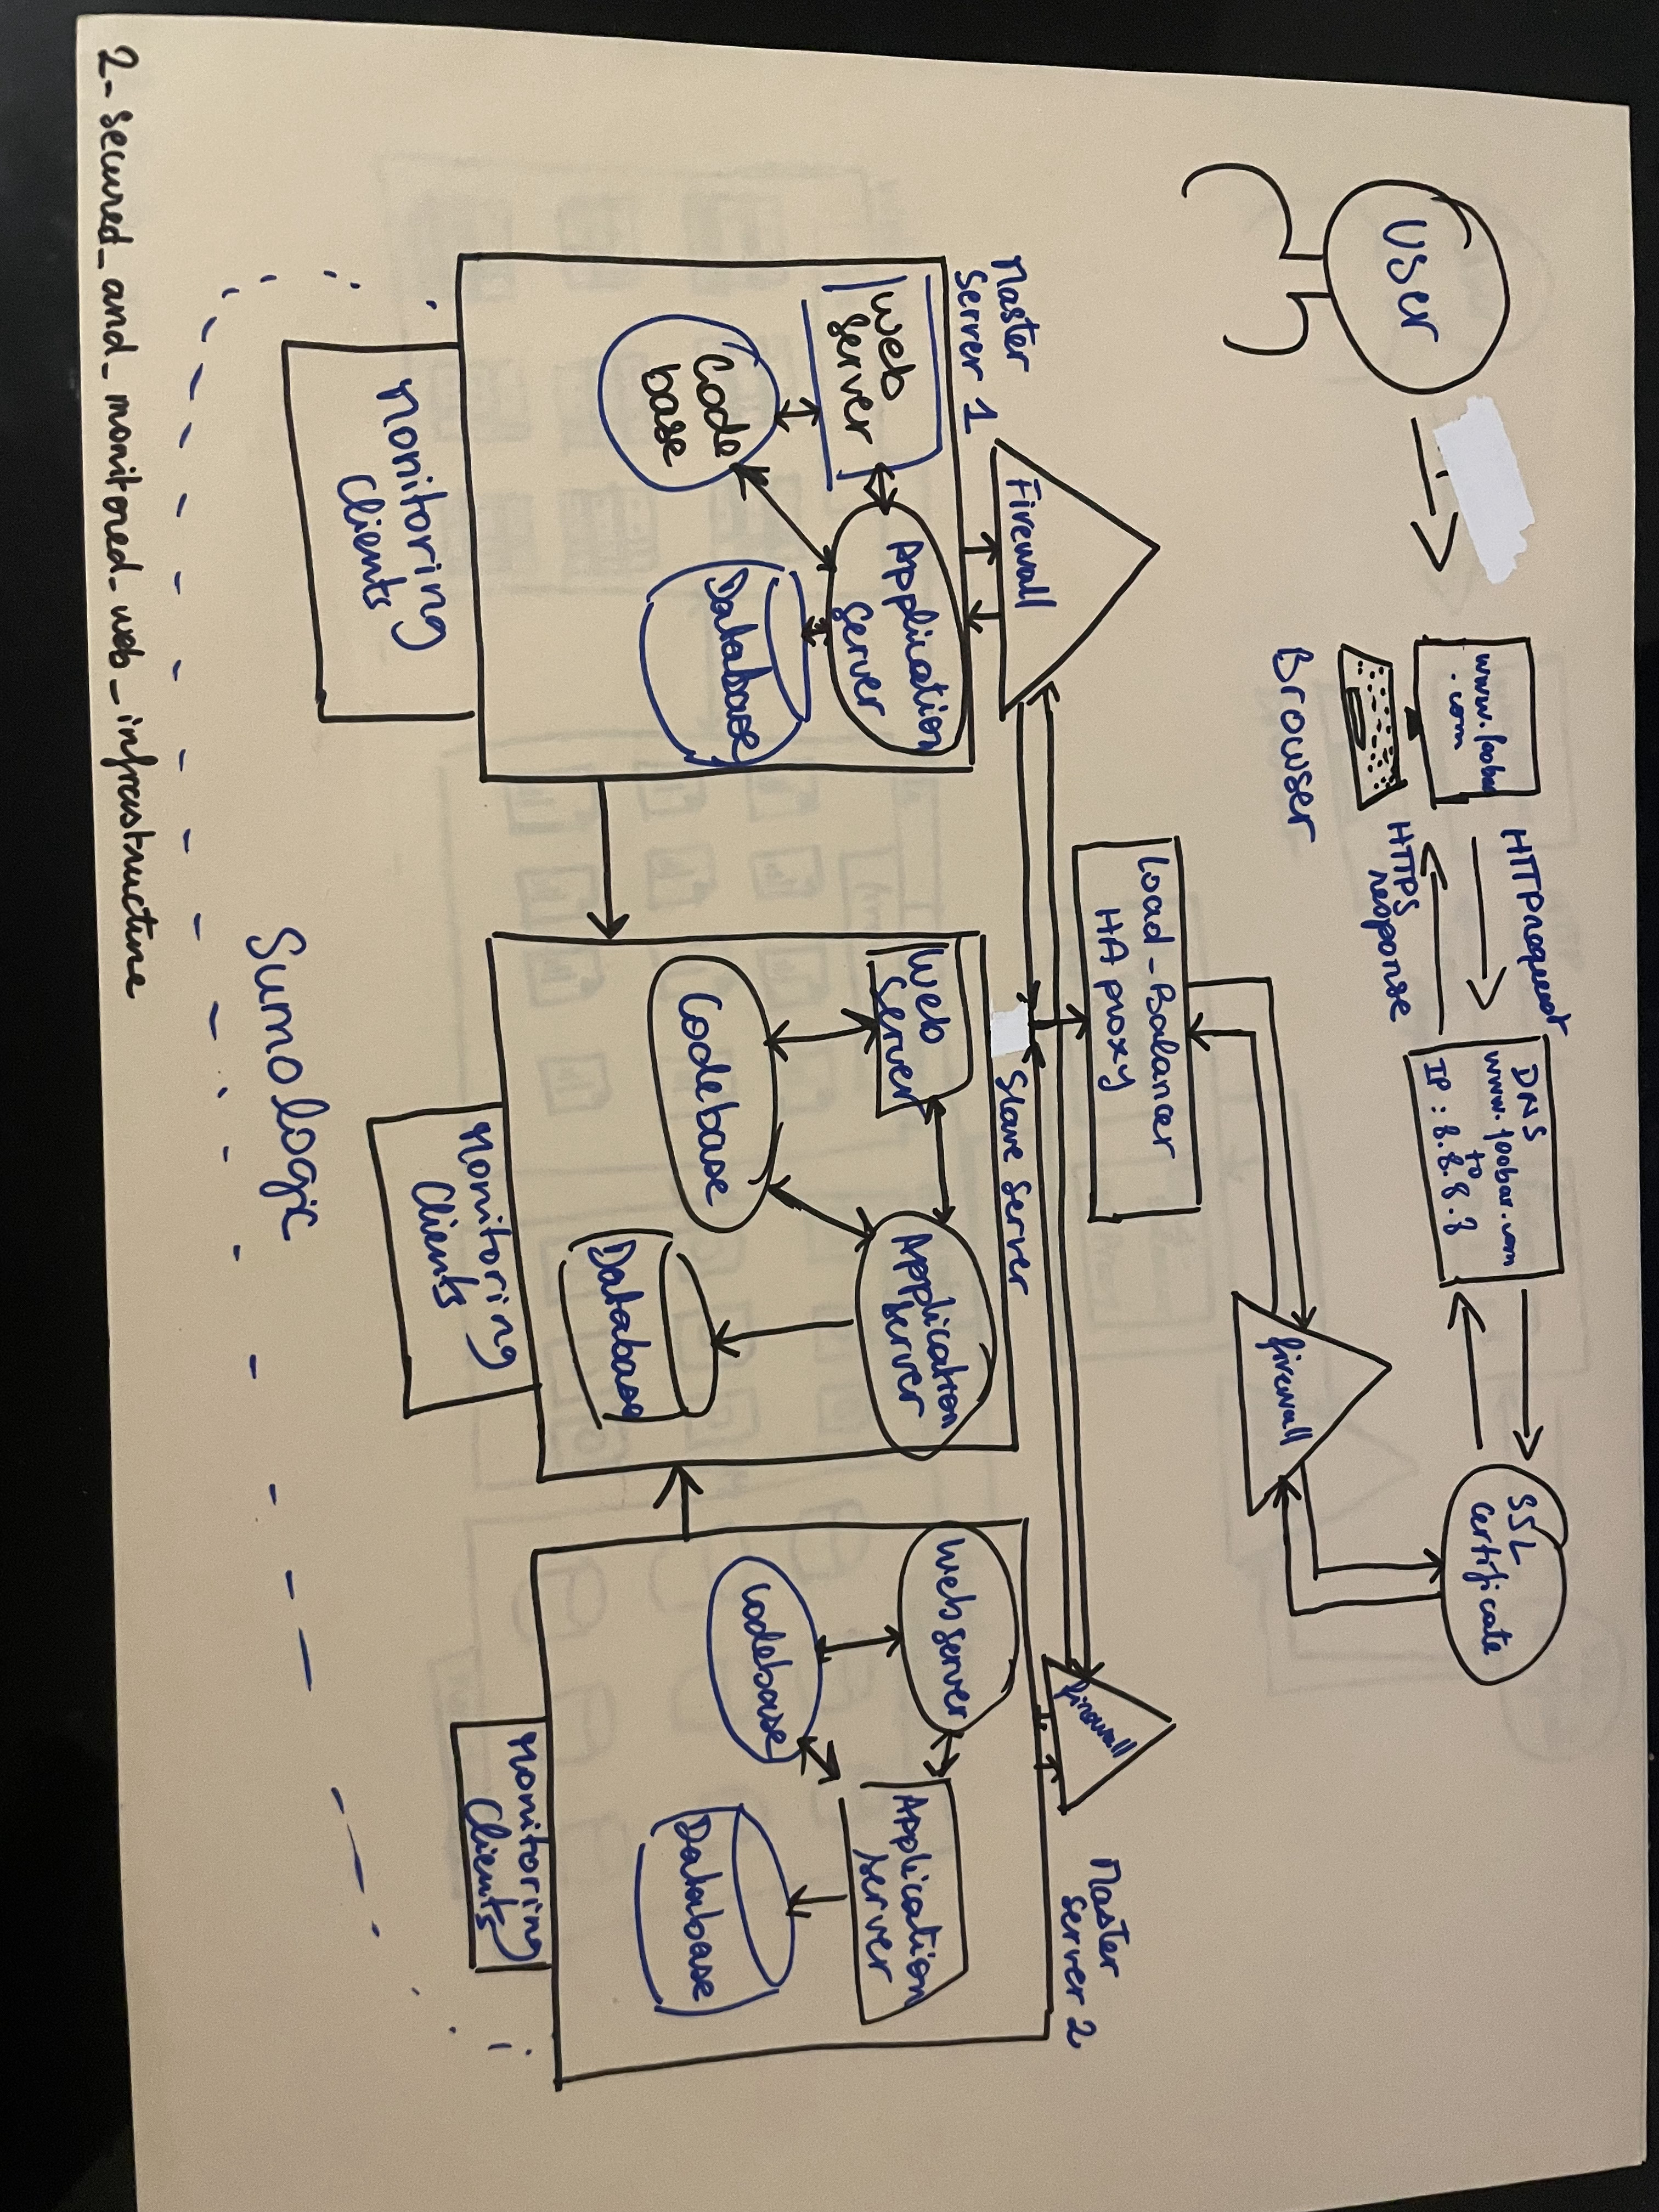 User
www.fooba
.com
Browser
HTTPrequest
HTTPS
response
DNS
www.foobar.com
to
IP : 8.8.8.8
SSL
certificate
firewall
Load-Balancer
HA proxy
Master
Server 1
Firewall
Web
Server
Application
Server
Code
base
Database
Monitoring
Clients
Slave Server
Web
Server
Application
Server
Codebase
Database
Monitoring
Clients
Master
Server 2
firewall
Web server
Application
server
Codebase
Database
Monitoring
Clients
Sumologic
2- secured_and_monitored_web_infrastructure